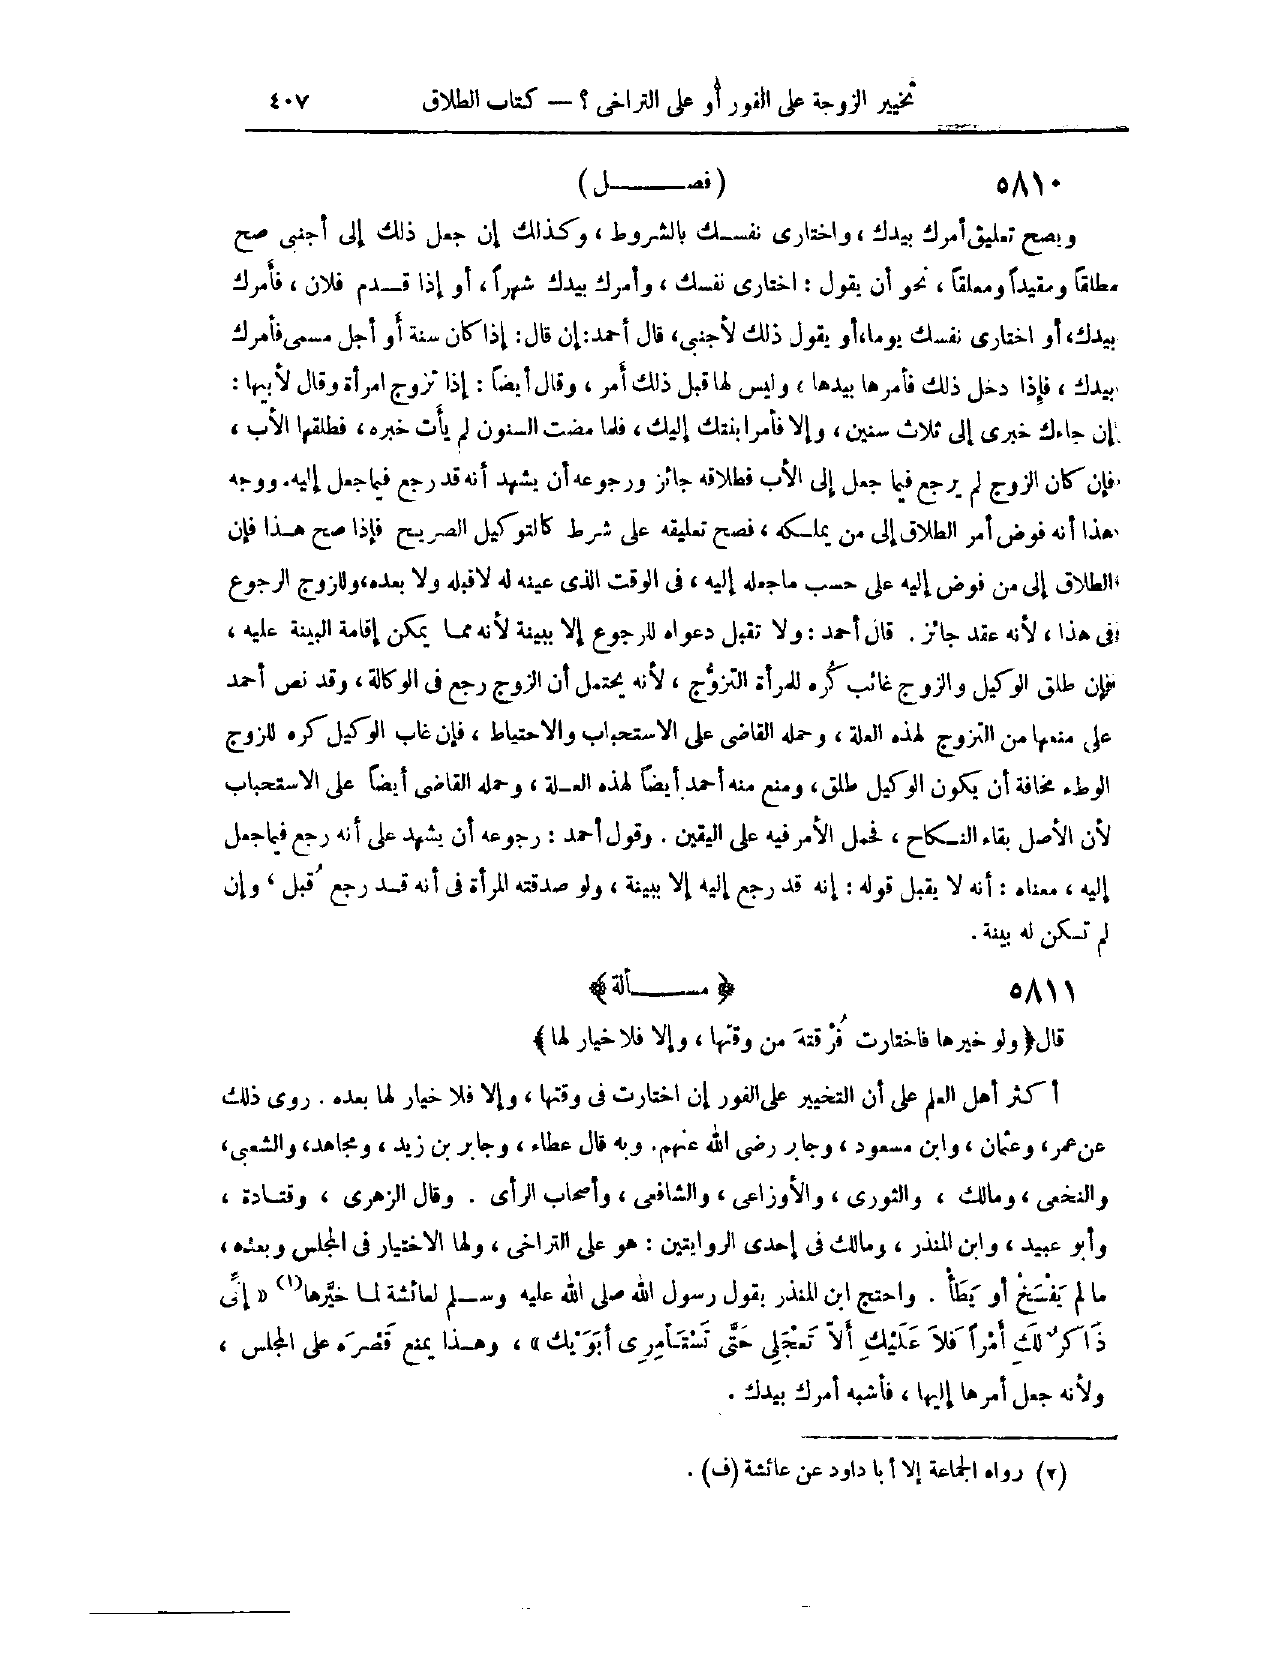 تخيير الزوجة على الفور أو على التراخى ؟ — كتاب الطلاق ٤٠٧
٥٨١٠ (فصـــل)
ويصح تعليق أمرك بيدك ، واختارى نفسك بالشروط ، وكذلك إن جعل ذلك إلى أجنبى صح
مطلقاً ومقيداً ومعلقاً ، نحو أن يقول : اختارى نفسك ، وأمرك بيدك شهراً ، أو إذا قدم فلان ، فأمرك
بيدك ، أو اختارى نفسك يوما، أو يقول ذلك لأجنبى، قال أحمد: إن قال : إذا كان سنة أو أجل مسمى فأمرك
بيدك ، فإذا دخل ذلك فأمرها بيدها ، وليس لها قبل ذلك أمر ، وقال أيضاً : إذا تزوج امرأة وقال لأبيها :
إن جاءك خبرى إلى ثلاث سنين ، وإلا فأمر ابنتك إليك ، فلما مضت السنون لم يأت خبره ، فطلقها الأب ،
فإن كان الزوج لم يرجع فيما جعل إلى الأب فطلاقه جائز ورجوعه أن يشهد أنه قد رجع فيما جعل إليه. ووجه
هذا أنه فوض أمر الطلاق إلى من يملكه ، فصح تعليقه على شرط كالتوكيل الصريح فإذا صح هذا فإن
الطلاق إلى من فوض إليه على حسب ماجعله إليه ، فى الوقت الذى عينه له لا قبله ولا بعده، وللزوج الرجوع
فى هذا ، لأنه عقد جائز . قال أحمد : ولا تقبل دعواه للرجوع إلا ببينة لأنه مما يمكن إقامة البينة عليه ،
فإن طلق الوكيل والزوج غائب كُره للمرأة التزوُّج ، لأنه يحتمل أن الزوج رجع فى الوكالة ، وقد نص أحمد
على منعها من التزوج لهذه العلة ، وحمله القاضى على الاستحباب والاحتياط ، فإن غاب الوكيل كره للزوج
الوطء مخافة أن يكون الوكيل طلق، ومنع منه أحمد أيضاً لهذه العلة ، وحمله القاضى أيضاً على الاستحباب
لأن الأصل بقاء النكاح ، فحمل الأمر فيه على اليقين . وقول أحمد : رجوعه أن يشهد على أنه رجع فيما جعل
إليه ، معناه : أنه لا يقبل قوله : إنه قد رجع إليه إلا ببينة ، ولو صدقته المرأة فى أنه قد رجع قُبل ، وإن
لم تكن له بينة .
٥٨١١ ﴿ مســألة ﴾
قال ﴿ ولو خيرها فاختارت فُرْقتهَ من وقتها ، وإلا فلا خيار لها ﴾
أكثر أهل العلم على أن التخيير على الفور إن اختارت فى وقتها ، وإلا فلا خيار لها بعده . روى ذلك
عن عمر، وعثمان ، وابن مسعود ، وجابر رضى الله عنهم. وبه قال عطاء ، وجابر بن زيد ، ومجاهد، والشعبى،
والنخعى ، ومالك ، والثورى ، والأوزاعى ، والشافعى ، وأصحاب الرأى . وقال الزهرى ، وقتادة ،
وأبو عبيد ، وابن المنذر ، ومالك فى إحدى الروايتين : هو على التراخى ، ولها الاختيار فى المجلس وبعده ،
ما لم يَفْسَخْ أو يَطَأْ . واحتج ابن المنذر بقول رسول الله صلى الله عليه وسلم لعائشة لما خيَّرها(١) « إنِّى
ذَاكرٌ لَكِ أمْراً فَلاَ عَلَيْكِ ألاَّ تَعْجَلِى حَتَّى تَسْتَأمِرِى أبَوَيْك » ، وهذا يمنع قَصْرَه على المجلس ،
ولأنه جعل أمرها إليها ، فأشبه أمرك بيدك .
(٢) رواه الجماعة إلا أبا داود عن عائشة (ف) .